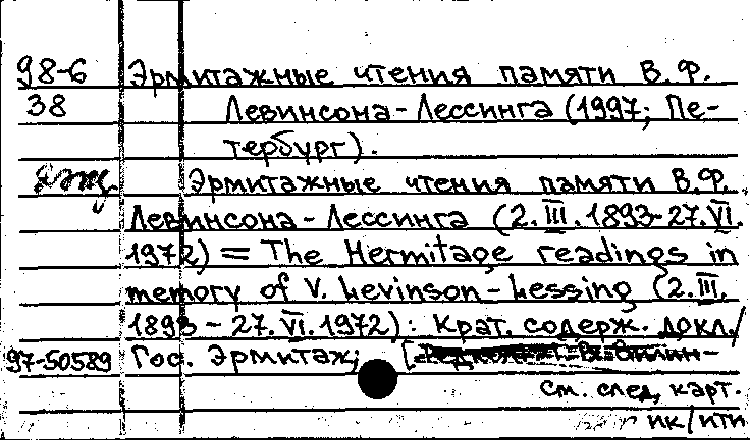 98-6 Эрмитажные чтения памяти В. Ф.
38 Левинсона-Лессинга (1997; Пе-
тербург).
Эрмитажные чтения памяти В.Ф.
Левинсона-Лессинга (2.III.1893-27.VI.
1972) = The Hermitage readings in
memory of V. Levinson-Lessing (2.III.
1893-27.VI.1972): Крат. содерж. докл./
97-50589 Гос. Эрмитаж; [
См. след. карт.
ик/ити